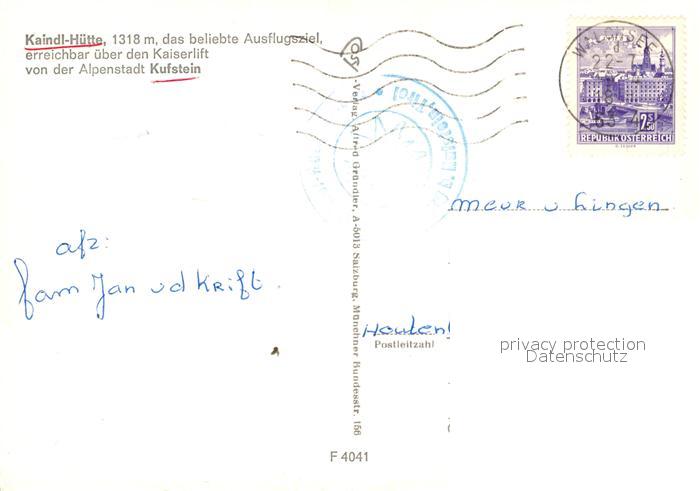 Kaindl-Hütte, 1318 m, das beliebte Ausflugsziel,
erreichbar über den Kaiserlift
von der Alpenstadt Kufstein
22-7
2 S 50
REPUBLIK ÖSTERREICH
afz:
fam Jan vd Krift
-Verlag Alfred Gründler, A-5013 Salzburg, Münchner Bundesstr. 156
meur v hingen
Houten
Postleitzahl
privacy protection
Datenschutz
F 4041